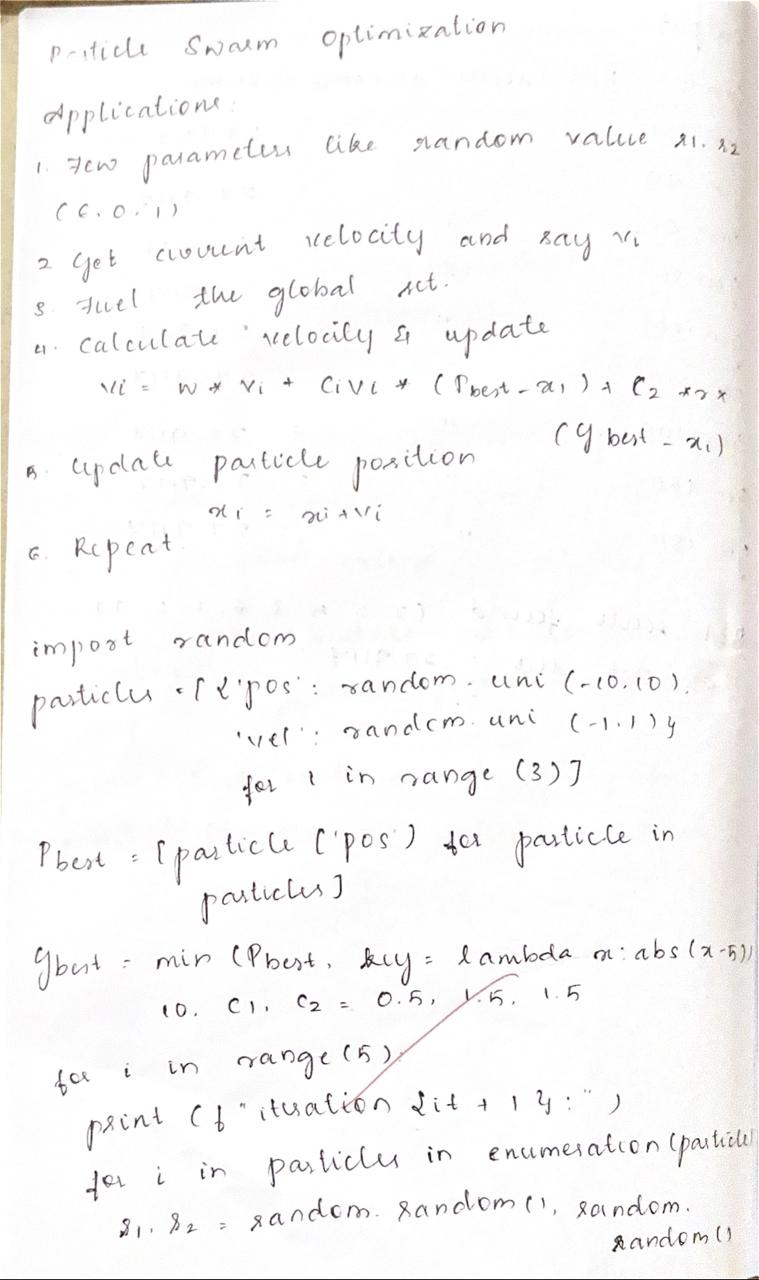 Particle Swarm Optimization
Applications:
1. Few parameters like random value r1, r2
(6,0,1)
2 Get current velocity and say vi
3. Fuel the global set.
4. Calculate velocity & update
vi = w * vi + CiVi * (Pbest - xi) + C2 * r *
(gbest - xi)
5. Update particle position
xi = xi + vi
6. Repeat
import random
particles = [{'pos': random.uni (-10,10),
'vel': random.uni (-1,1)}
for i in range (3)]
Pbest = [particle ['pos'] for particle in
particles]
gbest = min (Pbest, key = lambda x: abs(x-5))
w, C1, C2 = 0.5, 1.5, 1.5
for i in range (5):
print (f "iteration {it + 1}:")
for i in particles in enumeration (particles
r1, r2 = random.random(), random.
random()